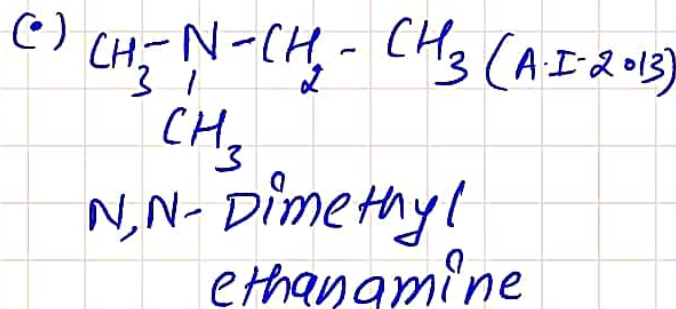 (•) CH3-N-CH2-CH3 (A.I-2013)
|
CH3
N,N- Dimethyl
ethanamine